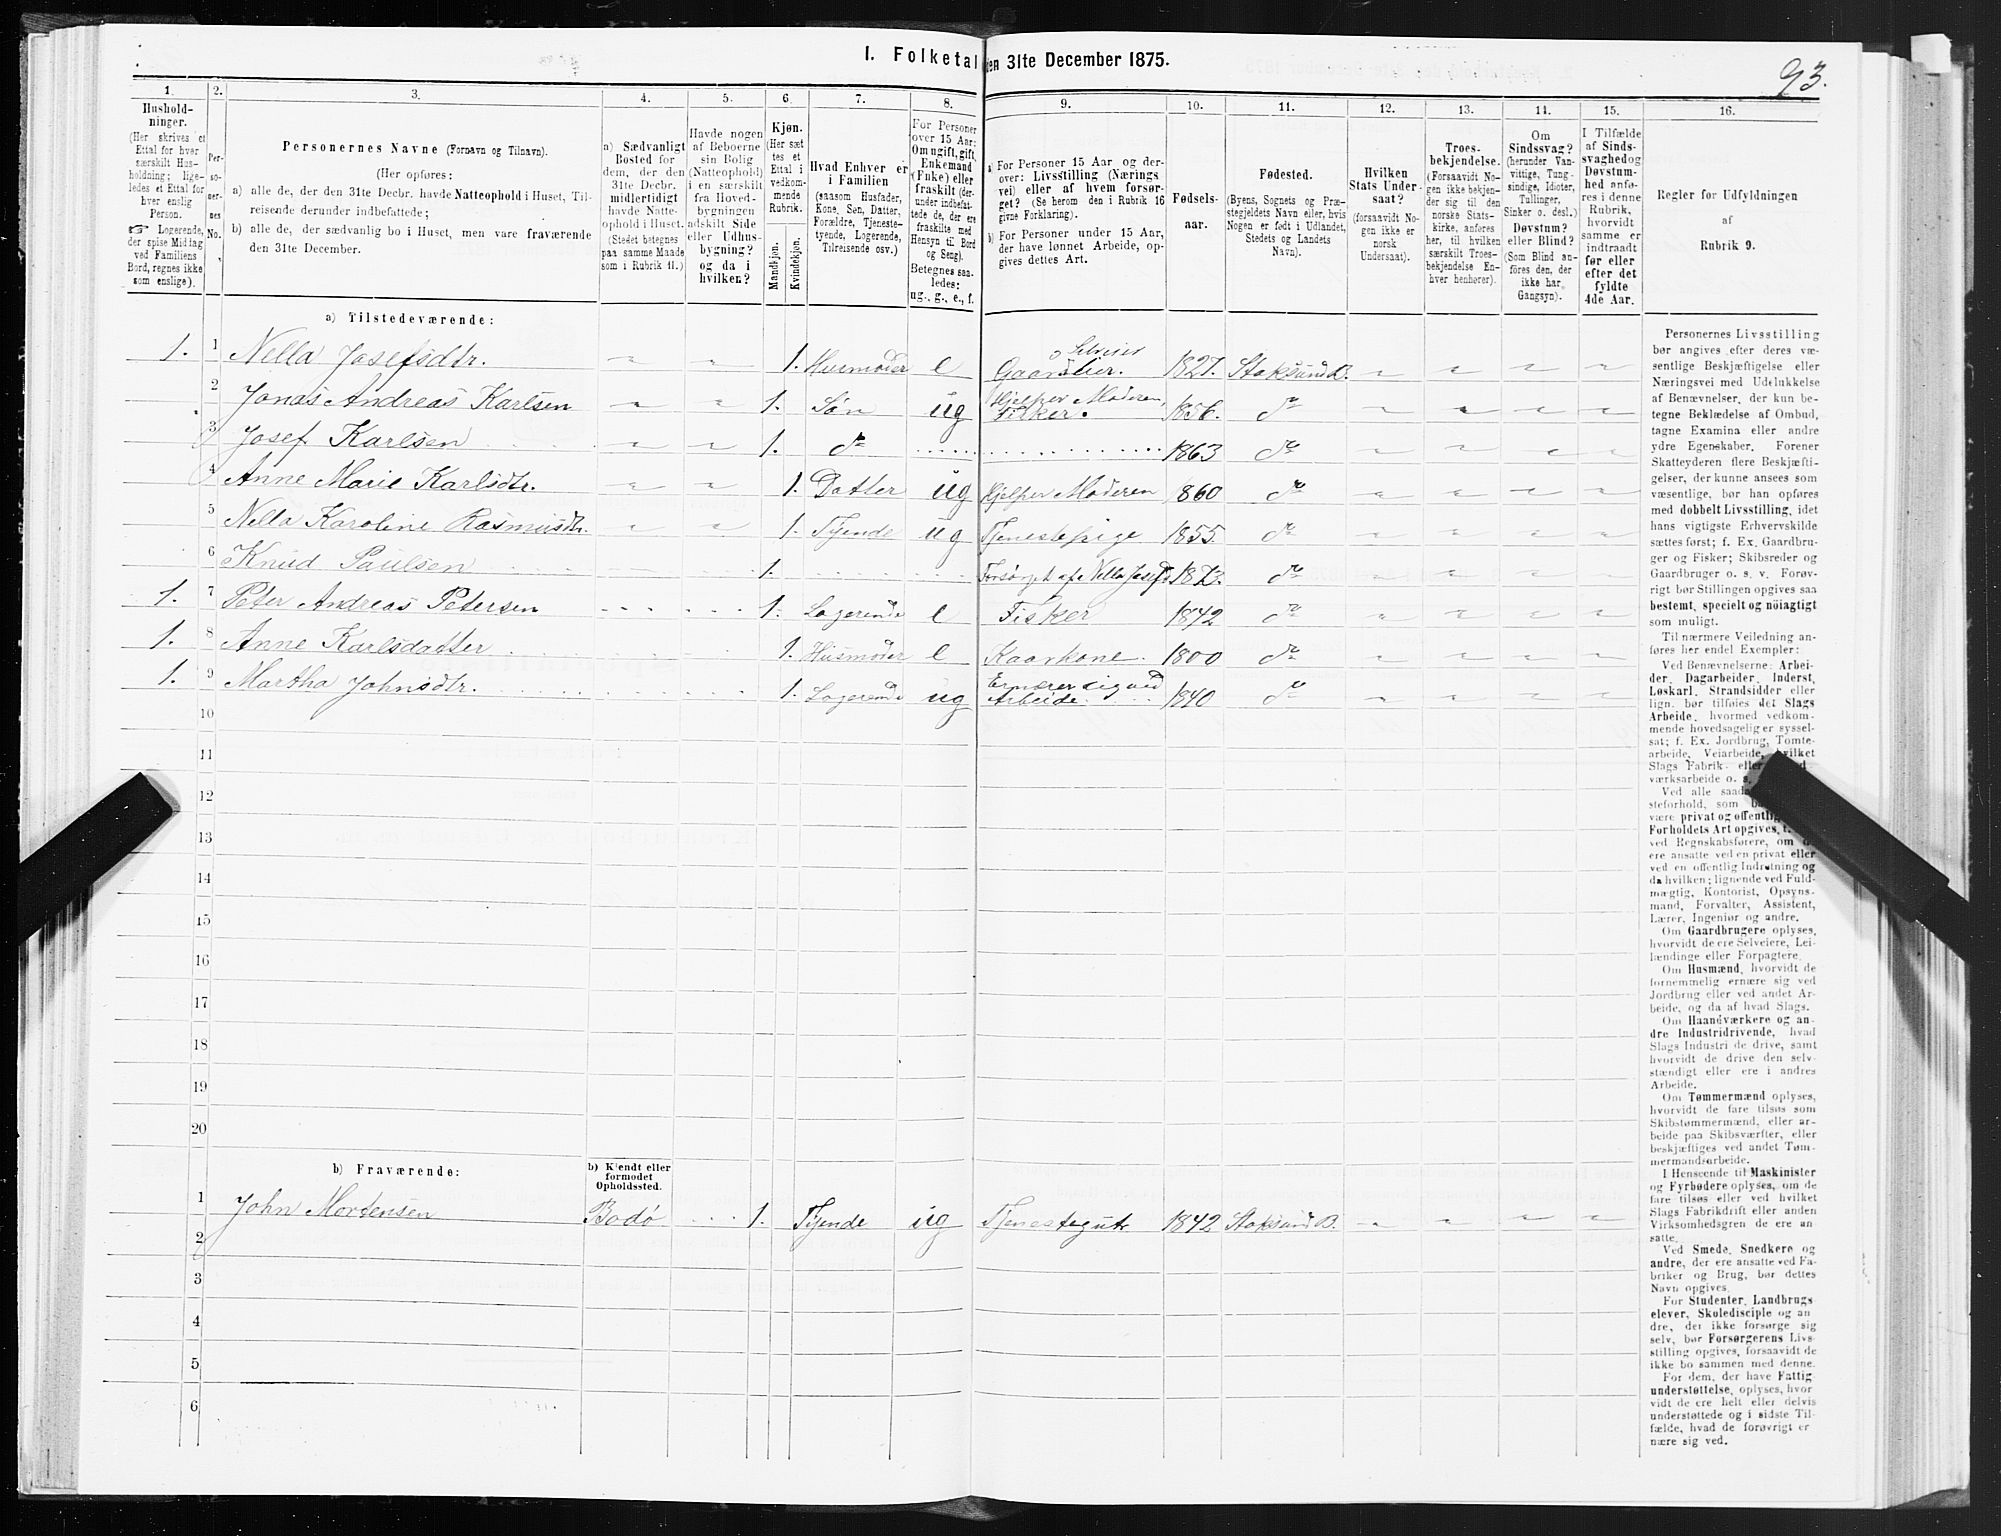 I. Folketal den 31te December 1875.
93.
1. 2. 3. 4. 5. 6. 7. 8. 9. 10. 11. 12. 13. 14. 15. 16.
Husholdninger.
(Her skrives et
Ettal for hver
særskilt Husholdning; ligeledes et Ettal for
hver enslig
Person.
☞ Logerende,
der spise Middag
ved Familiens
Bord, regnes ikke
som enslige).
Personernes No.
Personernes Navne (Fornavn og Tilnavn).
(Her opføres:
a) alle de, der den 31te Decbr. havde Natteophold i Huset, Tilreisende derunder indbefattede;
b) alle de, der sædvanlig bo i Huset, men vare fraværende
den 31te December.
a) Sædvanligt
Bosted for
dem, der den
31te Decbr.
midlertidigt
havde Natteophold i Huset.
(Stedet betegnes
paa samme Maade
som i Rubrik 11.)
Havde nogen
af Beboerne
sin Bolig
(Natteophold)
i en særskilt
fra Hovedbygningen
adskilt Side
eller Udhusbygning?
og da i
hvilken?
Kjøn.
(Her sættes et
Ettal i
vedkommende
Rubrik.
Mandkjøn.
Kvindekjøn.
Hvad Enhver er
i Familien
(saasom Husfader,
Kone, Søn, Datter,
Forældre, Tjenestetyende, Logerende,
Tilreisende osv.)
For Personer
over 15 Aar:
Om ugift, gift,
Enkemand
(Enke) eller
fraskilt (derunder indbefattede de, der ere
fraskilte med
Hensyn til Bord
og Seng).
Betegnes saaledes:
ug., g., e., f.
a) For Personer 15 Aar og derover: Livsstilling (Næringsvei) eller af hvem forsørget? (Se herom den i Rubrik 16
givne Forklaring).
b) For Personer under 15 Aar,
der have lønnet Arbeide, opgives dettes Art.
Fødselsaar.
Fødested.
(Byens, Sognets og Præstegjeldets Navn eller, hvis
Nogen er født i Udlandet,
Stedets og Landets
Navn).
Hvilken
Stats Undersaat?
(forsaavidt Nogen ikke er
norsk
Undersaat).
Troesbekjendelse.
(Forsaavidt Nogen ikke bekjender sig til den
norske Statskirke, anføres
her, til hvilken
særskilt Troesbekjendelse Enhver henhører).
Om
Sindssvag?
(herunder Vanvittige, Tungsindige, Idioter,
Tullinger,
Sinker o. desl.)
Døvstum?
eller Blind?
(Som Blind anføres den, der
ikke har
Gangsyn).
I Tilfælde
af Sindssvaghed og
Døvstumhed anføres i denne
Rubrik,
hvorvidt
samme er
indtraadt
før eller
efter det
fyldte
4de Aar.
Regler for Udfyldningen
af
Rubrik 9.
a) Tilstedeværende:
1. 1 Nella Josefsdtr. " " 1. Husmoder e Gaardbruger. og Selveier 1827. Stoksund B. " " " "
2 Jonas Andreas Karlsen " " 1. Søn ug Hjelper Moderen, Fisker. 1856. do " " " "
3 Josef Karlsen " " 1. do 1863 do " " " "
4 Anne Marie Karlsdtr. " " 1. Datter ug Hjelper Moderen 1860 do " " " "
5 Nella Karoline Rasmusdtr. " " 1. Tyende ug Tjenestepige 1855. do " " " "
6 Knud Paulsen 1. Forsørget af Nella Josefd. 1873. do " " " "
1. 7 Peter Andreas Petersen 1. Logerende e Fisker 1842 do " " " "
1. 8 Anne Karlsdatter 1. Husmoder e Kaarkone. 1800 do " " " "
1. 9 Martha Johnsdtr. 1. Logerende ug Ernærer sig ved Arbeide. 1840 do " " " "
10
11
12
13
14
15
16
17
18
19
20
b) Fraværende:
b) Kjendt eller
formodet
Opholdssted.
1 John Mortensen Bodø 1. Tyende ug Tjenestegut 1842 Stoksund B. " " " "
2
3
4
5
6
Personernes Livsstilling
bør angives efter deres væsentlige Beskjæftigelse eller
Næringsvei med Udelukkelse
af Benævnelser, der kun betegne Beklædelse af Ombud,
tagne Examina eller andre
ydre Egenskaber. Forener
Skatteyderen flere Beskjæftigelser, der kunne ansees som
væsentlige, bør han opføres
med dobbelt Livsstilling, idet
hans vigtigste Erhvervskilde
sættes først; f. Ex. Gaardbruger og Fisker; Skibsreder og
Gaardbruger o. s. v. Forøvrigt bør Stillingen opgives saa
bestemt, specielt og nøiagtigt
som muligt.
Til nærmere Veiledning anføres her endel Exempler:
Ved Benævnelserne: Arbeider, Dagarbeider, Inderst,
Løskarl, Strandsidder eller
lign. bør tilføies det Slags
Arbeide, hvormed vedkommende hovedsagelig er sysselsat; f. Ex. Jordbrug, Tomtearbeide, Veiarbeide, hvilket
Slags Fabrik- eller
værksarbeide o. s.
Ved alle saada
steforhold, som
være privat og offentlig
Forholdets Art opgives,
ved Regnskabsførere, om
ere ansatte ved en privat eller
ved en offentlig Indretning og
da hvilken; lignende ved Fuldmægtig, Kontorist, Opsynsmand, Forvalter, Assistent,
Lærer, Ingeniør og andre.
Om Gaardbrugere oplyses,
hvorvidt de ere Selveiere, Leilændinge eller Forpagtere.
Om Husmænd, hvorvidt de
fornemmelig ernære sig ved
Jordbrug eller ved andet Arbeide, og da af hvad Slags.
Om Haandværkere og andre Industridrivende, hvad
Slags Industri de drive, samt
hvorvidt de drive den selvstændigt eller ere i andres
Arbeide.
Om Tømmermænd oplyses,
hvorvidt de fare tilsøs som
Skibstømmermænd, eller arbeide paa Skibsværfter, eller
beskjæftiges ved andet Tømmermandsarbeide.
I Henseende til Maskinister
og Fyrbødere oplyses, om de
fare tilsøs eller ved hvilket
Slags Fabrikdrift eller anden
Virksomhedsgren de ere ansatte.
Ved Smede, Snedkere og
andre, der ere ansatte ved Fabriker og Brug, bør dettes
Navn opgives.
For Studenter, Landbrugselever, Skoledisciple og andre, der ikke forsørge sig
selv, bør Forsørgerens Livsstilling opgives, forsaavidt de
ikke bo sammen med denne.
For dem, der have Fattigunderstøttelse, oplyses, hvorvidt de ere helt eller delvis
understøttede og i sidste Tilfælde, hvad de forøvrigt ernære sig ved.